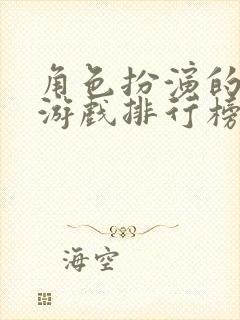 角色扮演的
游戏排行榜
海空